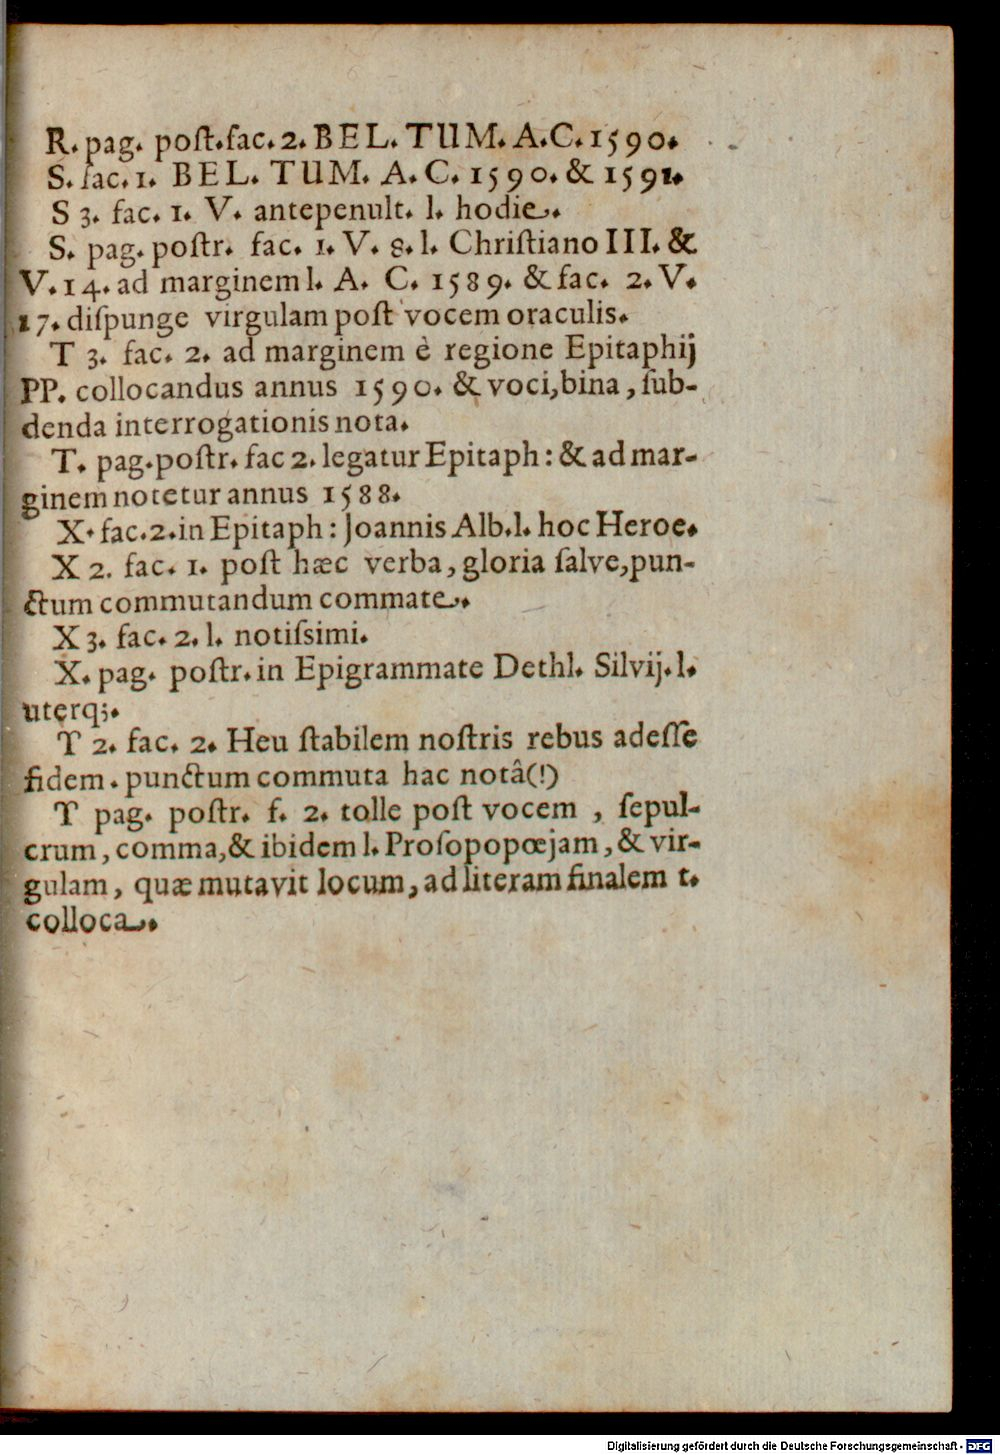 R. pag. poſt. fac. 2. BEL. TUM. A.C. 1590.
S. fac. 1. BEL. TUM. A. C. 1590. & 1591.
S 3. fac. 1. V. antepenult. l. hodie.
S. pag. poſtr. fac. 1. V. 8. l. Chriſtiano III. &
V. 14. ad marginem l. A. C. 1589. & fac. 2. V.
17. diſpunge virgulam poſt vocem oraculis.
T 3. fac. 2. ad marginem è regione Epitaphij
PP. collocandus annus 1590. & voci, bina, ſub-
denda interrogationis nota.
T. pag. poſtr. fac 2. legatur Epitaph: & ad mar-
ginem notetur annus 1588.
X. fac. 2. in Epitaph: Joannis Alb. l. hoc Heroe.
X 2. fac. 1. poſt hæc verba, gloria ſalve, pun-
ctum commutandum commate.
X 3. fac. 2. l. notiſsimi.
X. pag. poſtr. in Epigrammate Dethl. Silvij. l.
uterq;.
Y 2. fac. 2. Heu ſtabilem noſtris rebus adeſſe
fidem. punctum commuta hac notâ (!)
Y pag. poſtr. f. 2. tolle poſt vocem , ſepul-
crum, comma, & ibidem l. Proſopopœjam, & vir-
gulam, quæ mutavit locum, ad literam finalem t.
colloca.
Digitalisierung gefördert durch die Deutsche Forschungsgemeinschaft - DFG